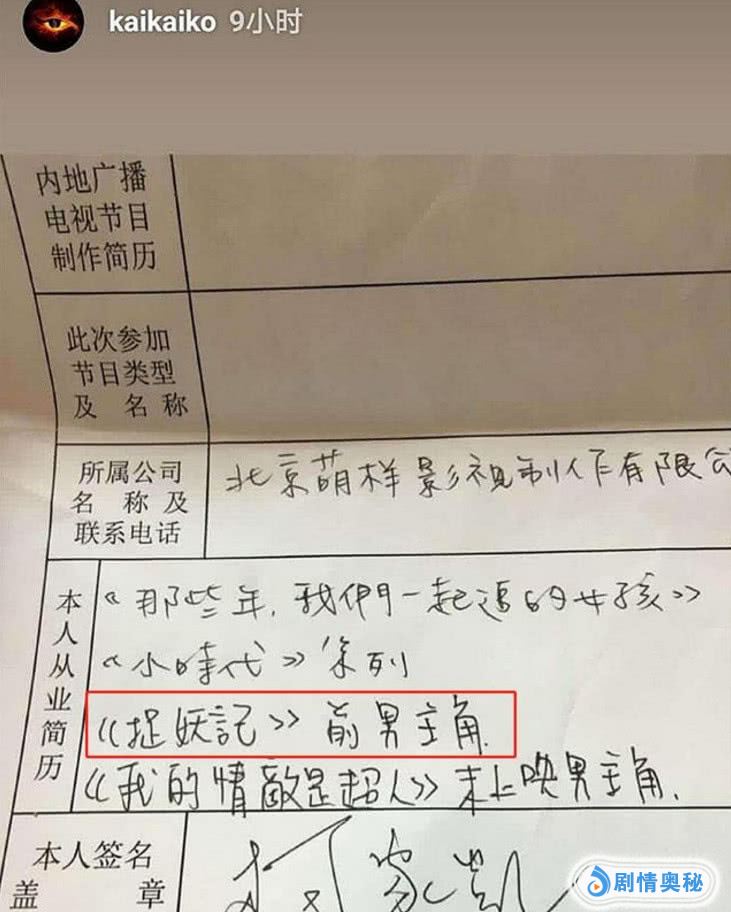 kaikaiko 9小时
内地广播
电视节目
制作简历
此次参加
节目类型
及 名 称
所属公司
名 称 及
联系电话
北京萌样影视制作有限公
本人从业简历
《那些年,我們一起追的女孩》
《小時代》系列
《捉妖記》前男主角.
《我的情敵是超人》未上映男主角.
本人签名
盖 章
柯家凱
剧情奥秘